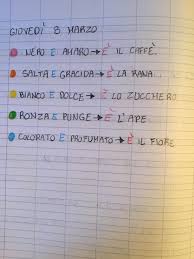 GIOVEDÌ 8 MARZO
NERO E AMARO → È IL CAFFÈ.
SALTA E GRACIDA → È LA RANA.
BIANCO E DOLCE → È LO ZUCCHERO
RONZA E PUNGE → È L'APE.
COLORATO E PROFUMATO → È IL FIORE